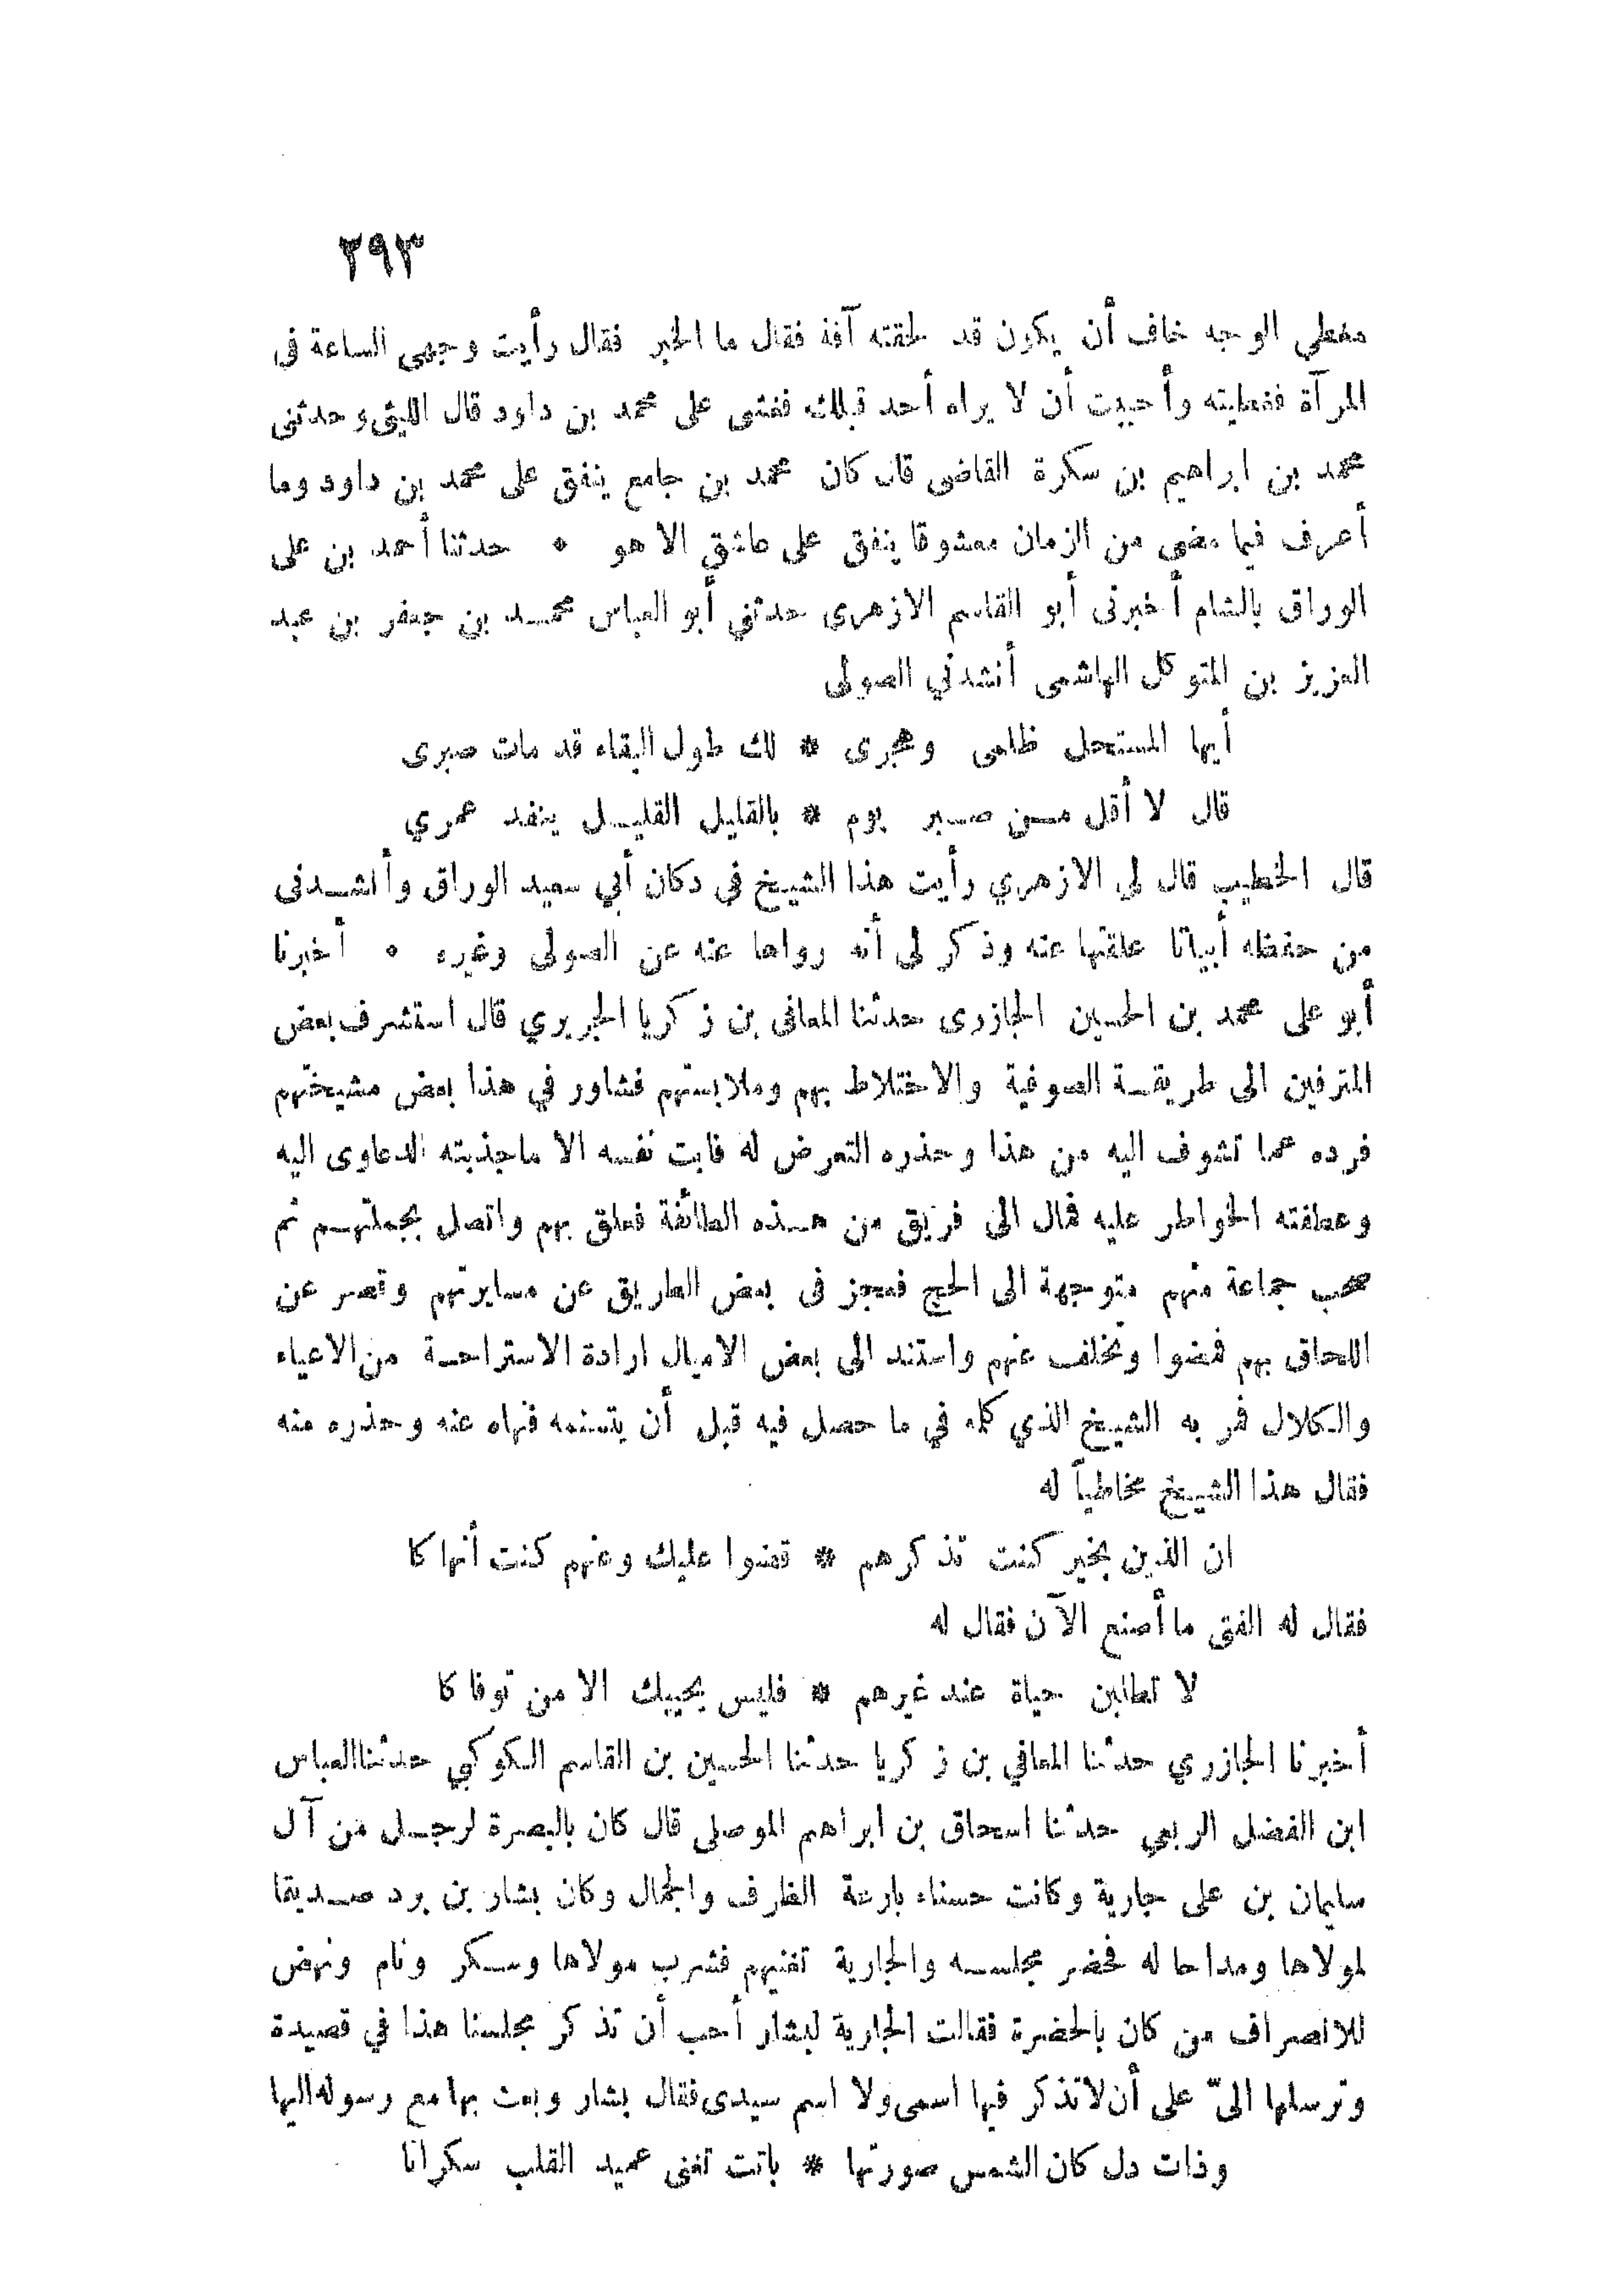 ٢٩٣
مغطي الوجه خاف أن يكون قد لحقته آفة فقال ما الخبر فقال رأيت وجهى الساعة في
المرآة فغطيته وأحببت أن لا يراه أحد قبلك فغشى على محمد بن داود قال الليثى وحدثنى
محمد بن ابراهيم بن سكرة القاضى قال كان محمد بن جامع ينفق على محمد بن داود وما
أعرف فيما مضى من الزمان معشوقا ينفق على عاشق الا هو ٥ حدثنا أحمد بن على
الوراق بالشام أخبرنى أبو القاسم الازهرى حدثني أبو العباس محمد بن جعفر بن عبد
العزيز بن المتوكل الهاشمى أنشدني الصولى
أيها المستحل ظلمى وهجرى * لك طول البقاء قد مات صبرى
قال لا أقل من صبر يوم * بالقليل القليل ينفد عمري
قال الخطيب قال لى الازهري رأيت هذا الشيخ في دكان أبي سعيد الوراق وأنشدنى
من حفظه أبياتا علقتها عنه وذكر لى أنه رواها عنه عن الصولى وغيره ٥ أخبرنا
أبو على محمد بن الحسين الجازرى حدثنا المعافى بن زكريا الجريري قال استشرف بعض
المترفين الى طريقة الصوفية والاختلاط بهم وملابستهم فشاور في هذا بعض مشيختهم
فرده عما تشوف اليه من هذا وحذره التعرض له فابت نفسه الا ماجذبته الدعاوى اليه
وعطفته الخواطر عليه فمال الى فريق من هذه الطائفة فعلق بهم واتصل بجملتهم ثم
صحب جماعة منهم متوجهة الى الحج فعجز فى بعض الطريق عن مسايرتهم وقصر عن
اللحاق بهم فمضوا وتخلف عنهم واستند الى بعض الاميال ارادة الاستراحة من الاعياء
والكلال فمر به الشيخ الذي كلمه في ما حصل فيه قبل أن يتسنمه فنهاه عنه وحذره منه
فقال هذا الشيخ مخاطباً له
ان الذين بخير كنت تذكرهم * قضوا عليك وعنهم كنت أنهاكا
فقال له الفتى ما أصنع الآن فقال له
لا تطلبن حياة عند غيرهم * فليس يحييك الا من توفاكا
أخبرنا الجازري حدثنا المعافي بن زكريا حدثنا الحسين بن القاسم الكوكبي حدثنا العباس
ابن الفضل الربعي حدثنا اسحاق بن ابراهم الموصلى قال كان بالبصرة لرجل من آل
سليمان بن على جارية وكانت حسناء بارعة الظرف والجمال وكان بشار بن برد صديقا
لمولاها ومداحا له فحضر مجلسه والجارية تغنيهم فشرب مولاها وسكر ونام ونهض
للانصراف من كان بالحضرة فقالت الجارية لبشار أحب أن تذكر مجلسنا هذا في قصيدة
وترسلها الىّ على أن لاتذكر فيها اسمى ولا اسم سيدى فقال بشار وبعث بها مع رسوله اليها
وذات دل كان الشمس صورتها * باتت تغنى عميد القلب سكرانا